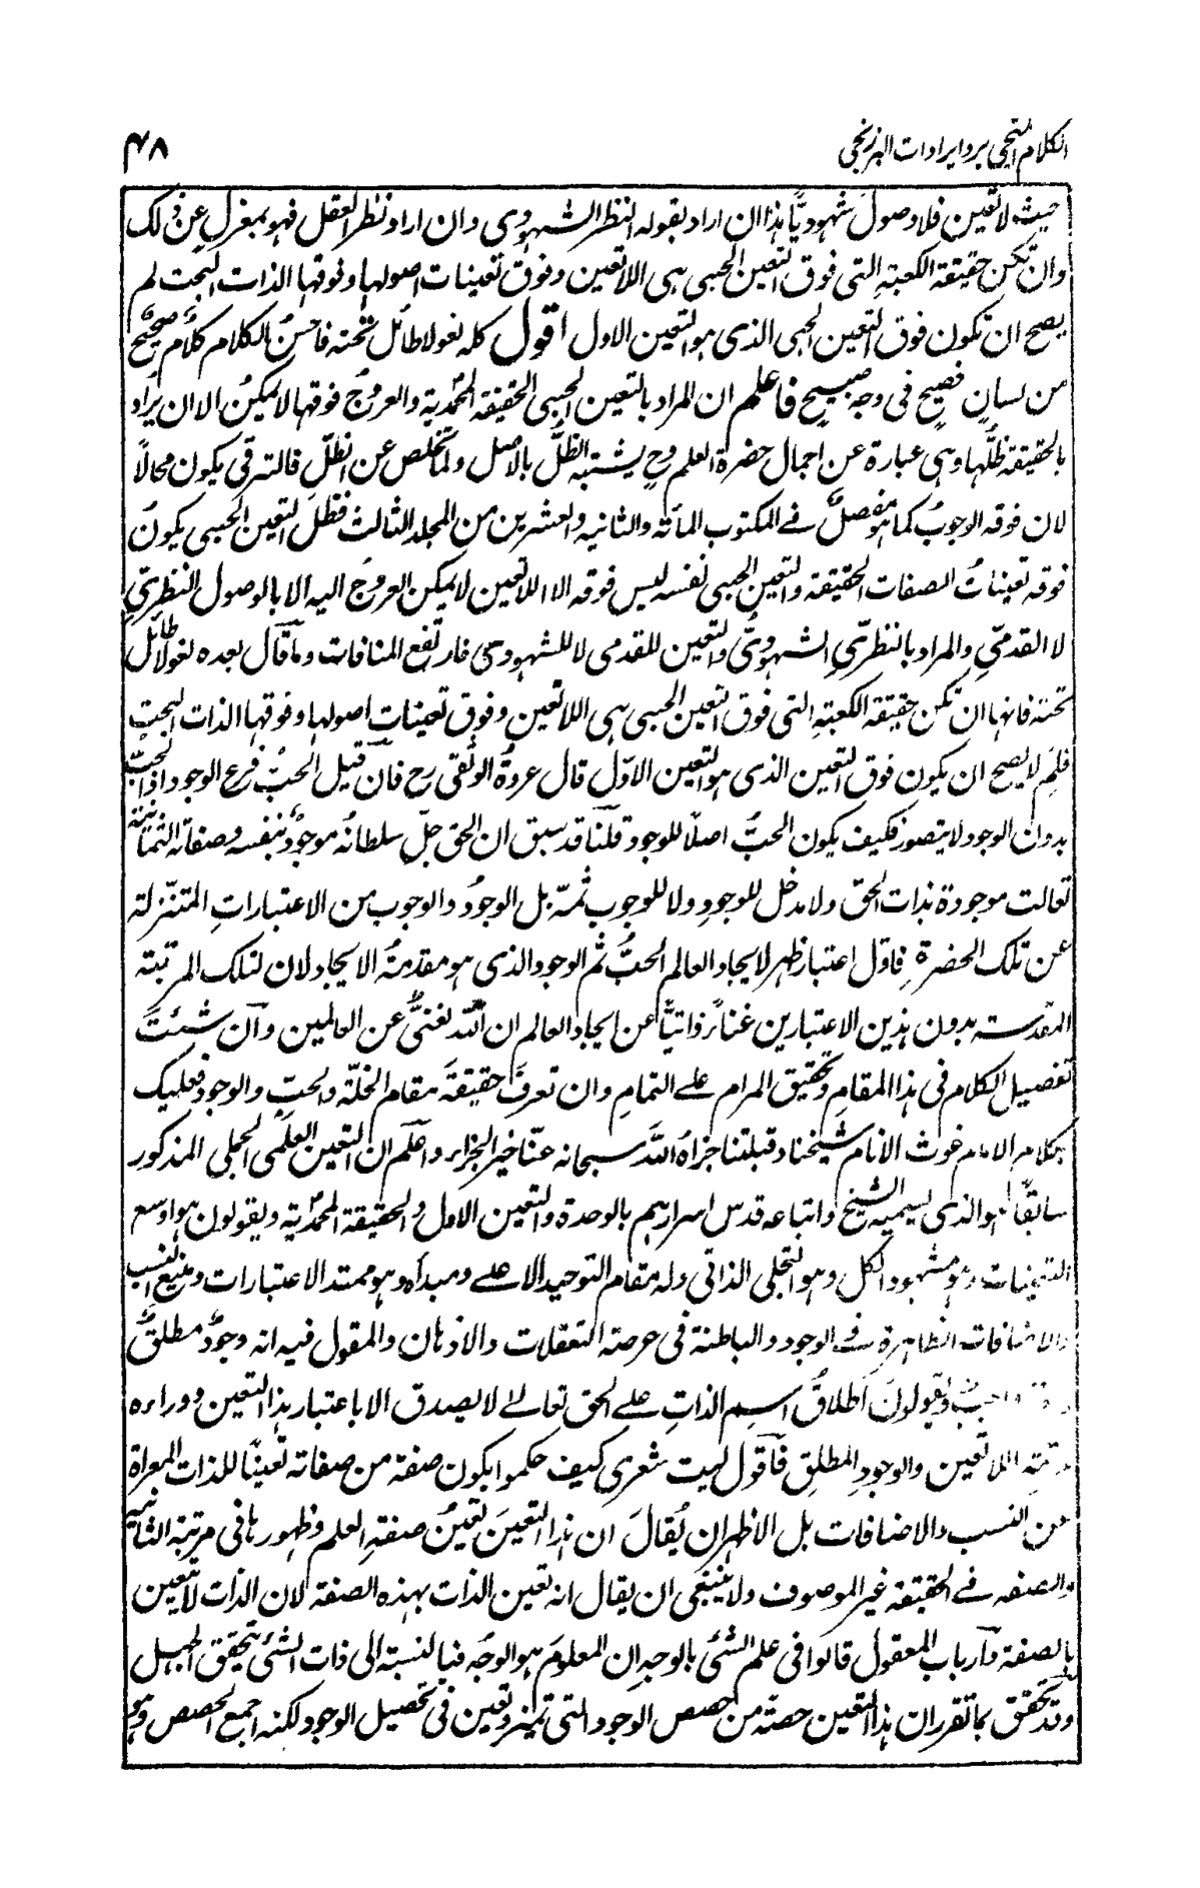 الكلام المنجي برد ايرادات البرزنجي
٤٨
حيث لا تعين فلا وصول شهوديًّا هذا ان اراد بقوله النظر الشهودي وان اراد نظر العقل فهو بمغزل عن ذلك
وان تكن حقيقة الكعبةِ التي فوق التعين الحبي هي اللاتعين وفوق تعينات اصولها وفوقها الذات البحت لم
يصح ان تكون فوق التعين الحبي الذي هو التعين الاول اقول كله لغو لا طائل تحته فاحسنُ الكلام كلامٌ صحيحٌ
من لسانٍ فصيحٍ في وجهٍ صبيحٍ فاعلم ان المراد بالتعين الحبي الحقيقة المحمّدية والعروج فوقها لا يمكنُ الا ان يراد
بالحقيقة ظلُّها وهي عبارة عن اجمال حضرة العلم وح يشتبه الظلُّ بالاصل ولما تخلص عن الظلّ فالترقي يكون محالًا
لان فوقه الوجوبُ كما هو مفصلٌ في المكتوب المأته والثانيه والعشرين من المجلد الثالث فظل التعين الحبي يكون
فوقه تعيناتُ الصفات الحقيقة والتعين الحبي نفسه ليس فوقه الا اللاتعين لا يمكن العروجُ اليه الا بالوصول النظريّ
لا القدميّ والمراد بالنظريّ الشهوديُّ والتعين للقدمي لا للشهودي فارتفع المنافات وما قال بعده لغو لا طائل
تحته فانها ان تكن حقيقة الكعبةِ التي فوق التعين الحبي هي اللاتعين وفوق تعينات اصولها وفوقها الذات البحت
فلِمَ لا يصح ان يكون فوق التعين الذي هو التعين الاوّل قال عروةُ الوثقى رح فان قيل الحبُّ فرع الوجود اذ الحبُّ
بدون الوجود لا يتصور فكيف يكون الحبُّ اصلًا للوجود قلنا قد سبق ان الحق جلّ سلطانُه موجودٌ بنفسه وصفاته الثمانية
تعالت موجودة بذات الحقّ ولا مدخل للوجودِ ولا للوجوب ثمّة بل الوجودُ والوجوب من الاعتباراتِ المتنزلة
عن تلك الحضرةِ فاوّل اعتبار ظهر لايجاد العالم الحبُّ ثم الوجود الذي هو مقدمةُ الايجاد لان لتلك المرتبة
المقدّسة بدون هذين الاعتبارين غناءً ذاتيًّا عن ايجاد العالم ان اللّٰه لغنيٌّ عن العالمين وان شئتَ
تفصيل الكلام في هذا المقام وتحقيق المرام على التمام وان تعرف حقيقةَ مقام الخلّة والحبّ والوجود فعليك
بكلام الامام غوث الانام شيخنا وقبلتنا جزاه اللّٰه سبحانه عنّا خير الجزاء واعلم ان التعين العلمي الجملي المذكور
سابقًا هو الذي يسميه الشيخ واتباعه قدس اسرارهم بالوحدة والتعين الاول والحقيقة المحمّدية ويقولون هو اوسع
التعينات وهو مشهود الكل وهو التجلي الذاتي وله مقام التوحيد الاعلى ومبدأه وهو ممتد الاعتبارات ومنبع النسب
والاضافات الظاهرة في الوجود والباطنة في عرصة التعقلات والاذهان والمقول فيه انه وجودٌ مطلقٌ
ويقولون اطلاقُ اسم الذاتِ على الحق تعالى لا يصدق الا باعتبار هذا التعين ووراءه
اللاتعين والوجودِ المطلق فاقول ليت شعري كيف حكموا بكون صفة من صفاته تعينًا للذات المعراة
عن النسب والاضافات بل الاظهر ان يُقالَ ان هذا التعينَ تعينُ صفةِ العلم وظهورها في مرتبة الثانية
والصفة في الحقيقة غير الموصوف ولا ينبغي ان يقال انه تعين الذات بهذه الصفة لان الذات لا يتعين
بالصفة وارباب المعقول قالوا في علم الشئ بالوجه ان المعلوم هو الوجه فبالنسبة الى ذات الشئ تحقق الجهل
وقد تحقق بما تقرر ان هذا التعين حصة من حصص الوجود التي تميز وتعين في تحصيل الوجود لكنه اجمع الحصص وهو